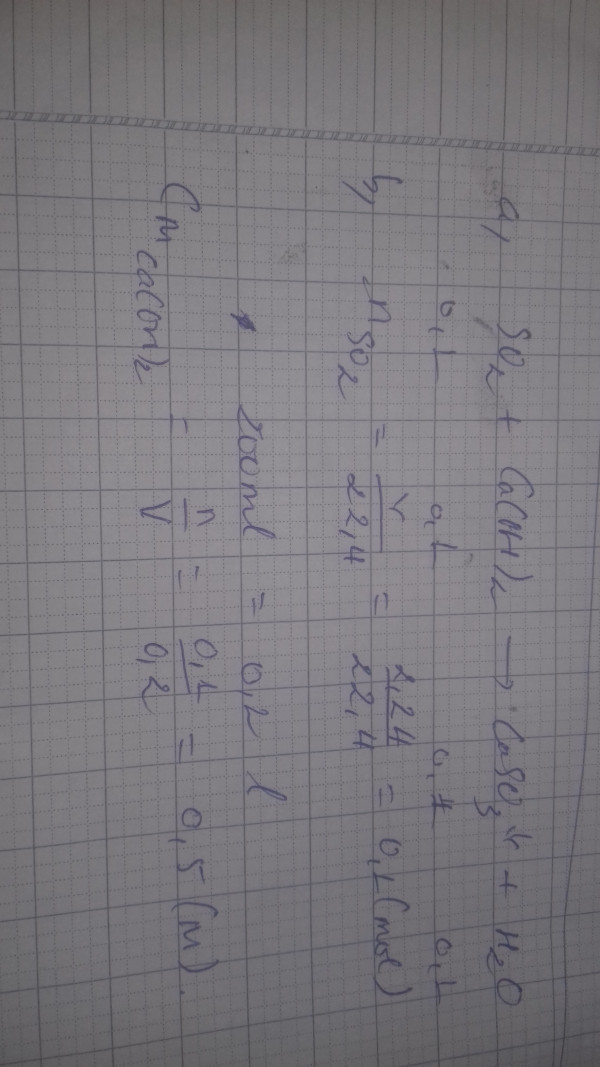 a, SO2 + Ca(OH)2 → CaSO3↓ + H2O
0,1 0,1 0,1 0,1
b, nSO2 = V/22,4 = 2,24/22,4 = 0,1 (mol)
200ml = 0,2 l
CM Ca(OH)2 = n/V = 0,1/0,2 = 0,5 (M).